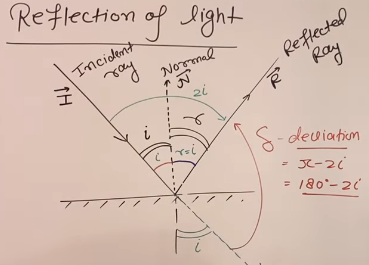 Reflection of light
Incident
ray
Normal
N
Reflected
Ray
I
R
2i
i
r
i
r=i
δ - deviation
= π-2i
= 180°-2i
i